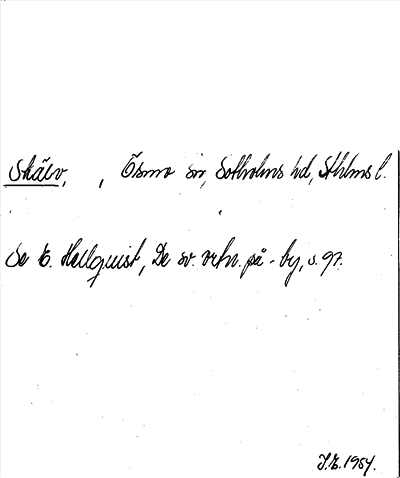 Skälv, , Ösmo sn, Sotholms hd, Sthlms l.
Se E. Hellquist, De sv. ortn. på -by, s. 97.
I.E. 1954.